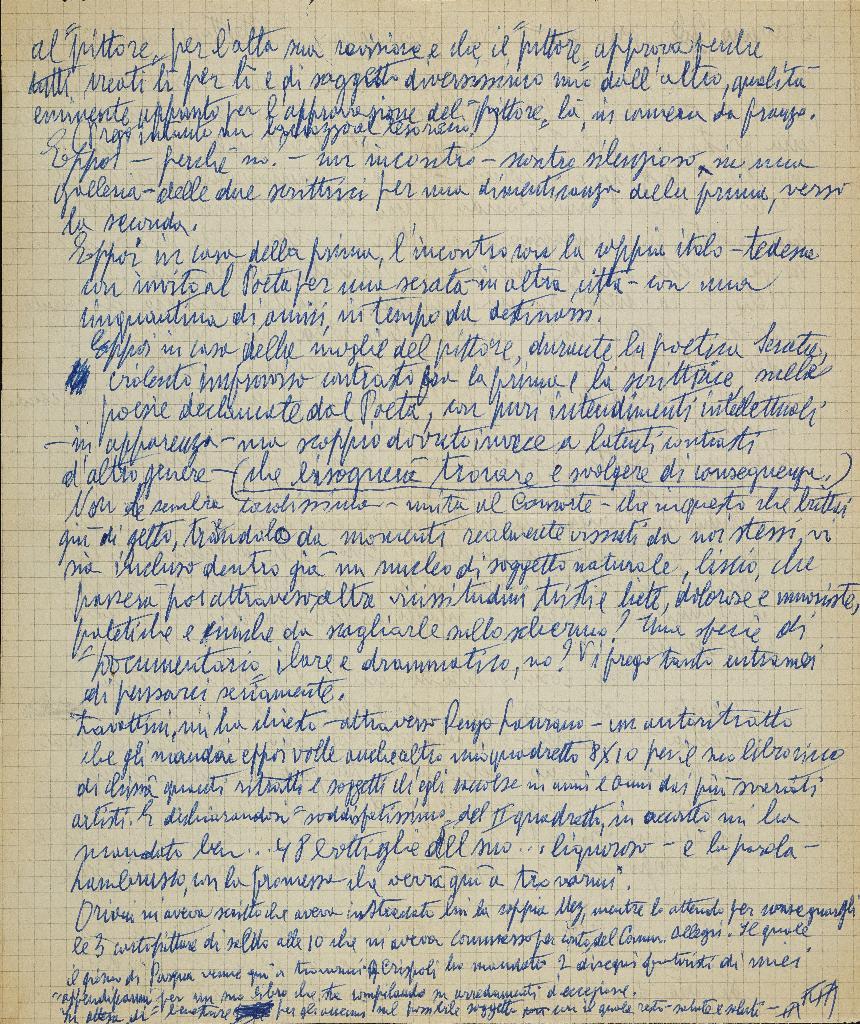 al "pittore, per l'alta sua revisione e che il "pittore, approva perché
tutti creati lì per lì e di soggetto diversissimo uno dall'altro, qualità
eminente appunto per l'approvazione del "pittore, là, in camera da pranzo.
(Prego intanto un al tesoraro!)
Eppoi – perché no. – un incontro – scontro silenzioso, in una
galleria – delle due scrittrici per una dimenticanza della prima, verso
la seconda.
Eppoi in casa della prima, l'incontro con la coppia italo – tedesca
con invito al Poeta per una serata – in altra città – con una
cinquantina di amici, in tempo da destinarsi.
Eppoi in casa della moglie del pittore, durante la poetica serata,
violento improvviso contrasto fra la prima e la scrittrice, sulle
poesie declamate dal Poeta, con puri intendimenti intellettuali
– in apparenza – ma scoppio dovuto invece a latenti contrasti
d'altro genere – (che bisognerà trovare e svolgere di conseguenza..)
Non Le sembra carissima – unita al Consorte – che in questo che buttai
giù di getto, traendolo da momenti realmente vissuti da noi stessi, vi
sia incluso dentro già un nucleo di soggetto naturale, liscio, che
passerà poi attraverso altre vicissitudini tristi e liete, dolorose e umoriste,
patetiche e comiche da scagliarle sullo schermo? Una specie di
"Documentario, ilare e drammatico, no? Vi prego tanto entrambi
di pensarci seriamente.
Zavattini, mi ha chiesto – attraverso Renzo – un autoritratto
che gli mandai eppoi volle anche altro mio quadretto 8x10 per il suo librocino
di chissà quanti ritratti e soggetti ch'egli raccolse in anni e anni dai più svariati
artisti. E dichiarandosi "soddisfatissimo, del II quadretto, in accatto mi ha
mandato ben... 48 bottiglie del suo... liquoroso – è la parola –
Lambrusco, con la promessa che verrà qui a trovarmi.
mi aveva scritto che aveva la coppia mentre lo attendo per consegnargli
le 3 cartopitture di saldo alle 10 che mi aveva commesso per conto del Comm. Allegri. Il quale
il giorno di Pasqua venne qui a trovarmi. A Crispoli ho mandato 2 disegni futuristi di miei
per un suo libro che sta compilando su arredamenti d'eccezione.
In attesa di per gli sul possibile soggetto con il quale resto – saluto e saluti –